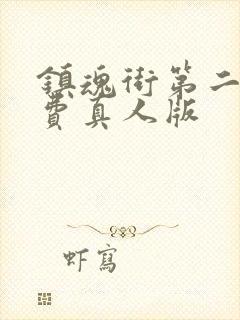 鎮魂街第二
費真人版
虾寫